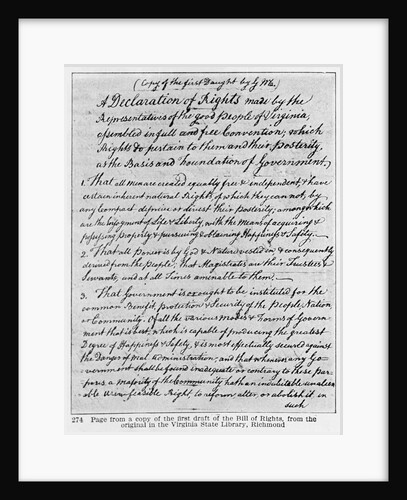 (Copy of the first Daught by G M.)
A Declaration of Rights made by the
Representatives of the good People of Virginia,
assembled in full and free Convention; which
Rights do pertain to them and their Posterity,
as the Basis and Foundation of Government.
1. That all men are created equally free & independent, & have
certain inherent natural Rights, of which they can not, by
any Compact, deprive or divest their Posterity; among which
are the Enjoyment of Life & Liberty, with the Means of acquiring &
possessing Property, & pursueing & obtaining Happiness & Safety.
2. That all Power is by God & Nature vested in, & consequently
derived from the People; that Magistrates are their Trustees &
Servants, and at all Times amenable to them.
3. That Government is, or ought to be instituted for the
common Benefit, Protection & Security of the People, Nation
or Community. Of all the various Modes & Forms of Govern-
ment that is best, which is capable of producing the greatest
Degree of Happiness & Safety, & is most effectually secured against
the Danger of mal Administration; and that whenever any Go-
vernment shall be found inadequate or contrary to these pur-
poses, a majority of the Community hath an indubitable unalien-
able & indefeasible Right, to reform, alter, or abolish it, in
such
274 Page from a copy of the first draft of the Bill of Rights, from the
original in the Virginia State Library, Richmond